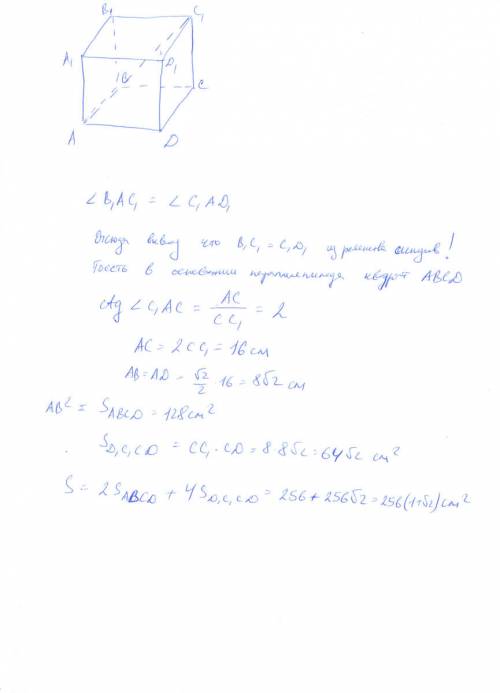 B₁ C₁
A₁ D₁
B C
A D
∠B₁AC₁ = ∠C₁AD₁
Отсюда вывод что B₁C₁ = C₁D₁ из равенства !
Тоесть в основании параллелепипеда квадрат ABCD
ctg ∠C₁AC = AC/CC₁ = 2
AC = 2CC₁ = 16 см
AB = AD = √2/2 · 16 = 8√2 см
AB² = S_ABCD = 128 см²
S_D₁C₁CD = CC₁ · CD = 8·8√2 = 64√2 см²
S = 2S_ABCD + 4S_D₁C₁CD = 256 + 256√2 = 256(1+√2) см²